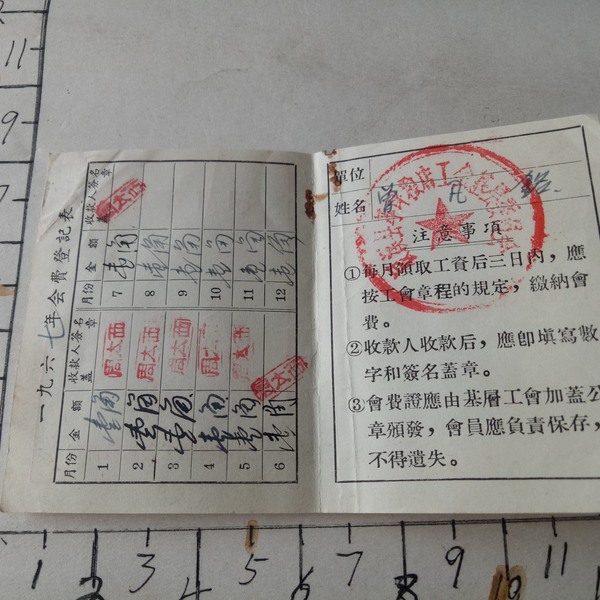 一九六七年会費登記表
月份 金額 收款人簽名蓋章
1 壹角 周太西
2 壹角 周太西
3 壹角 周太西
4 壹角
5 壹角
6 壹角
月份 金額 收款人簽名蓋章
7 壹角
8 壹角
9 壹角
10 壹角
11 壹角
12 壹角
單位
姓名
注意事項
①每月領取工資后三日內，應
按工會章程的規定，繳納會
費。
②收款人收款后，應卽填寫數
字和簽名蓋章。
③會費證應由基層工會加蓋公
章頒發，會員應負責保存，
不得遺失。
11
9
7
5
3
1
1 2 3 4 5 6 7 8 9 10 11